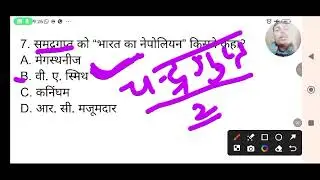 7. समुद्रगुप्त को "भारत का नेपोलियन" किसने कहा?
A. मेगस्थनीज
B. वी. ए. स्मिथ
C. कनिंघम
D. आर. सी. मजूमदार
चन्द्रगुप्त
2